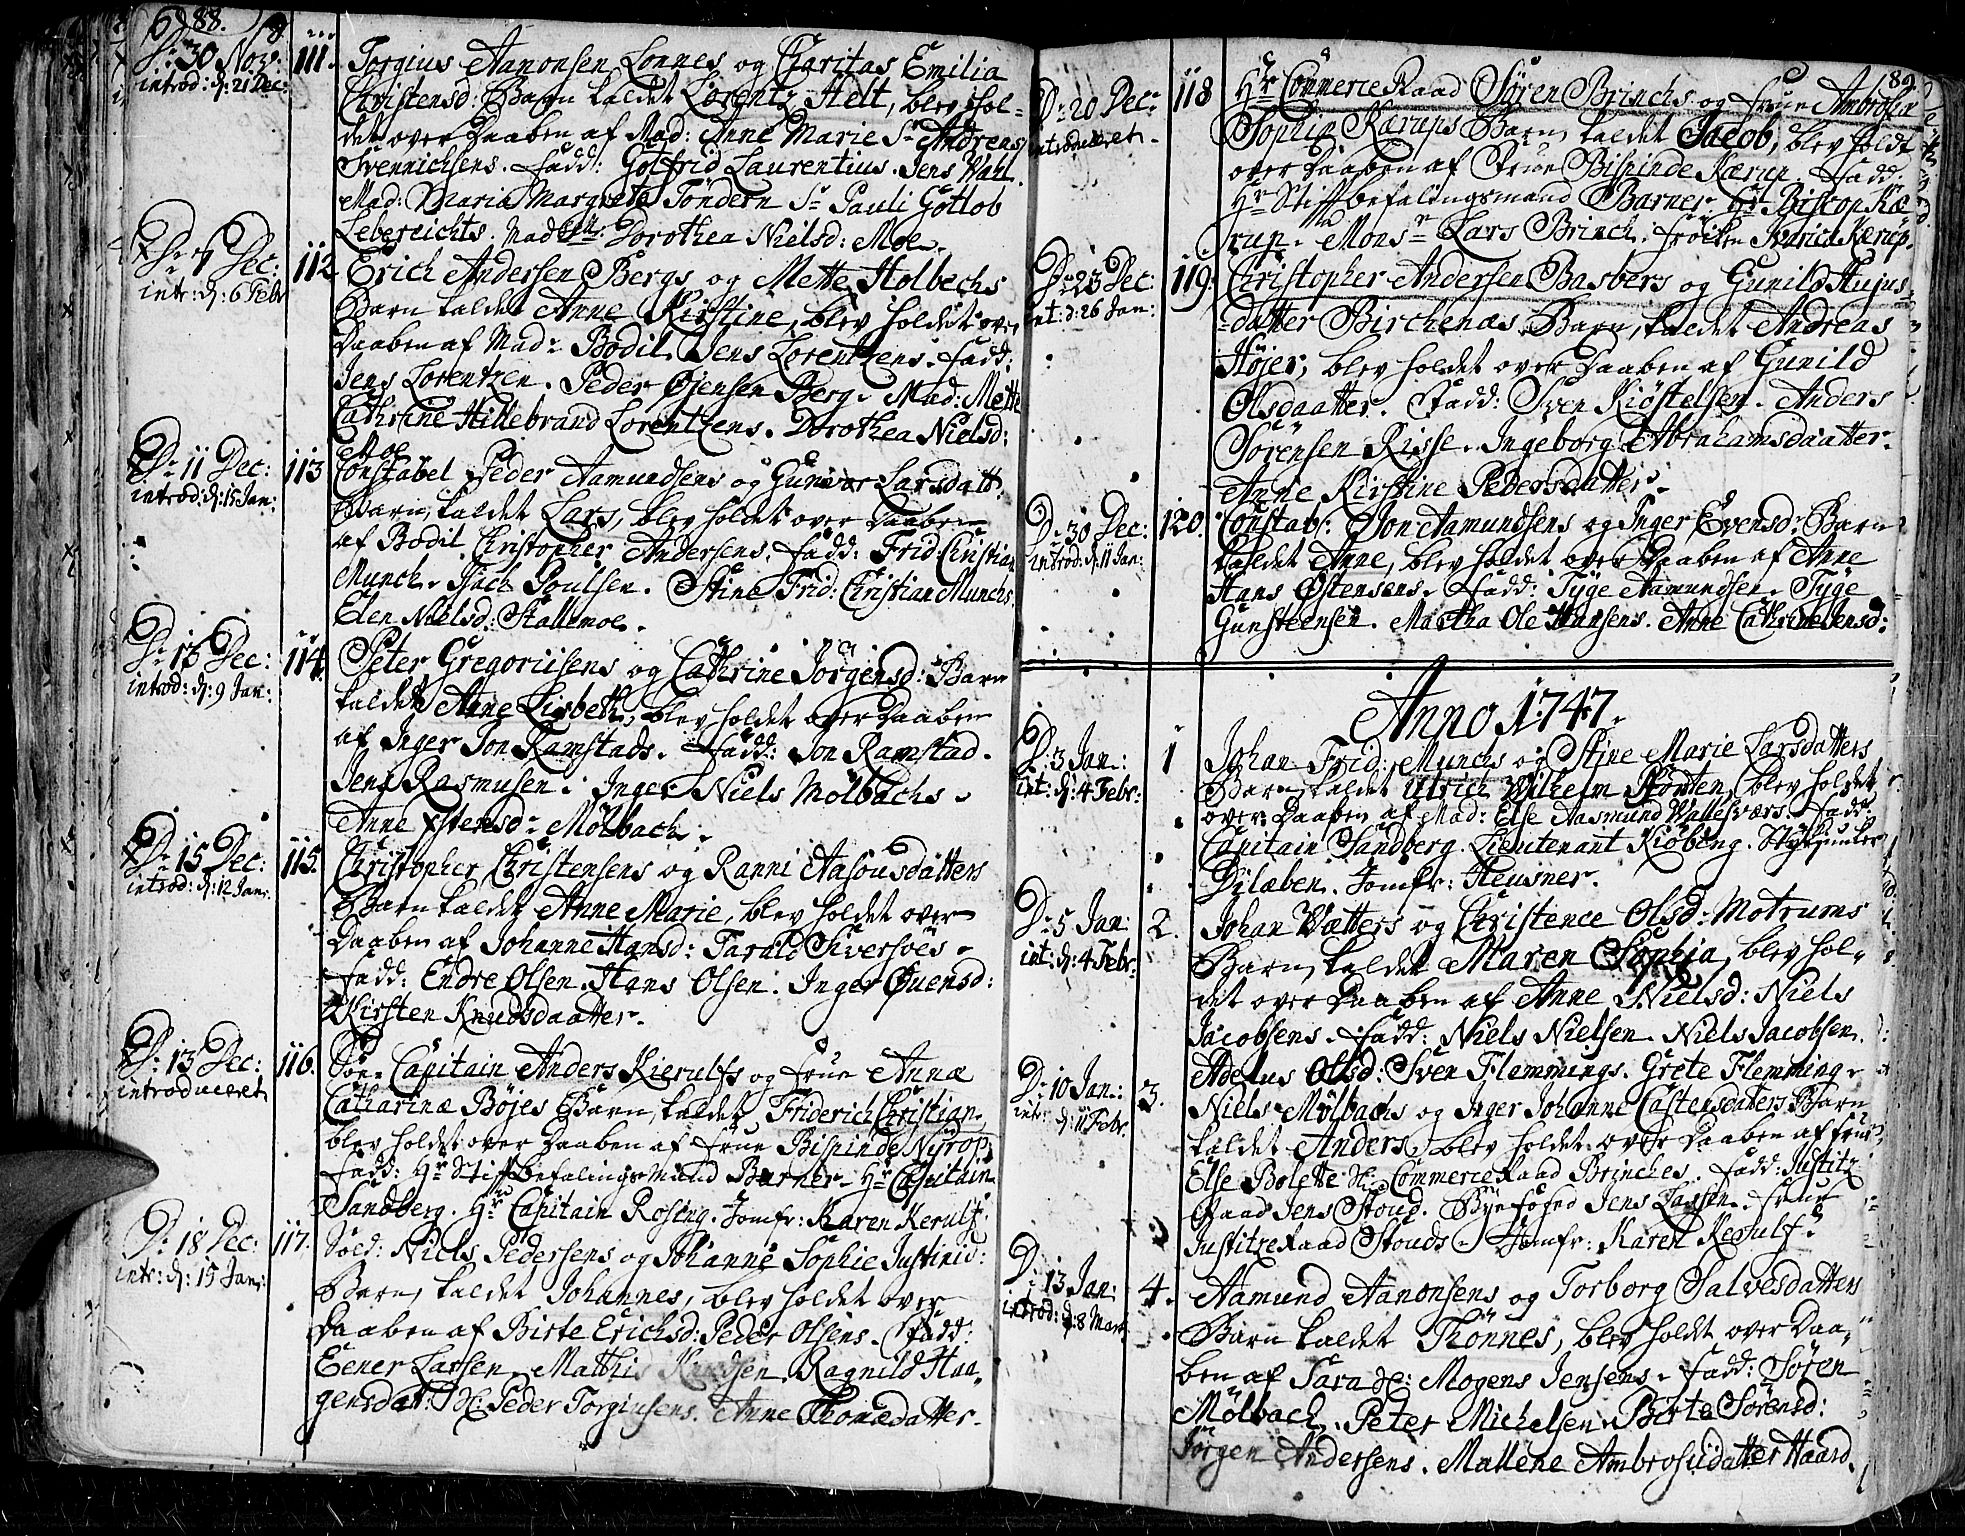 88.
D: 30 Nov: 111. Torgius Aanonsen Lonnes og Charitas Emilia
introd: d: 21 Dec: Christensd: Barn kaldet Lorentz Helt, blev hol-
det over Daaben af Mad: Anne Marie Sr Andreas
Svennichsens. Fadd: Gotfrid Laurentius. Jens Wahl.
Mad: Maria Margreta Töndern Sr Pauli Gotlob
Lebereichts. Mad Dorothea Nielsd: Moe.
Dec: 112 Erich Andersen Bergs og Mette Holbechs
intr: d: 6 Febr Barn kaldet Anne Kirstine, blev holdet over
Daaben af Mad: Bodil Jens Lorentzens. Fadd:
Jens Lorentzen. Peder Øjensen Berg. Mad: Mette
Cathrine Hillebrand Lorentzens. Dorothea Nielsd:
Moe
D: 11 Dec: 113 Constabel Peder Aamundsens og Gunvor Larsdatt:
introd: d: 15 Jan: Barn, kaldet Lars, blev holdet over Daaben
af Bodil Christopher Andersens. Fadd: Frid: Christian
Munch. Poulsen. Stine Frid: Christian Munchs.
Elen Nielsd: Stallemoe.
D: 13 Dec: 114. Peter Gregoriisens og Cathrine Jörgensd: Barn
introd: d: 9 Jan: kaldet Anne Lisbeth, blev holdet over Daaben
af Inger Jon Ramstads. Fadd: Jon Ramstad.
Jens Rasmusen. Inger Niels Mölbachs.
Anne Mölbach.
D: 15 Dec: 115. Christopher Christensens og Ranni Aasousdatters
introd: d: 12 Jan: Barn kaldet Anne Marie, blev holdet over
Daaben af Johanne Hansd: Tarald Siversöes.
Fadd: Endre Olsen. Hans Olsen. Inger Øuensd:
Kirsten Knudsdaatter.
D: 13 Dec: 116. Söe-Capitain Anders Kierulfs og Frue Annæ
introduceret Catharinæ Böjes Barn, kaldet Friderich Christian,
blev holdet over Daaben af Frue Bispinde Nyrop,
Fadd: Hr Stiftbefalings Mand Barner. Hr Capitain
Sandberg. Hr Capitain Rosing. Jomfr: Karen Kerulf.
D: 18 Dec: 117. Sold: Niels Pedersens og Johanne Sophie Justinid:
intr: d: 15 Jan: Barn, kaldet Johannes, blev holdet over
Daaben af Birte Erichsd: Peder Olsens. Fadd:
Eener Larsen. Mathis Knudsen. Ragnild Haa-
gensdat: Peder Torgiusens. Anne Thomædatter.
89
D: 20 Dec: 118 Hr CommerceRaad Sören Brinchs og Frue Ambrosia
introduceret. Sophia Kærups Barn, kaldet Jacob, blev holdt
over Daaben af Frue Bispinde Kærup. Fadd:
Hr Stiftbefalingsmand Barner. Hr Biscop Kæ-
rup. Monsr Lars Brinch. Frøiken Maria Kærup.
D: 23 Dec: 119. Christopher Andersen Basbergs og Gunild Hujus-
int: d: 26 Jan: datter Birchenæs Barn, kaldet Andreas
Höjer, blev holdet over Daaben af Gunild
Olsdaatter. Fadd: Sven Kiöstelsen. Anders
Sörensen Risse. Ingeborg Abrahamsdaatter.
Anne Kirstine Pedersdatter.
D: 30 Dec: 120. Constab: Jon Aamundsens og Inger Evensd: Barn
introd: d: 11 Jan: kaldet Anne, blev holdet over Daaben af Anne
Hans Østensens. Fadd: Tyge Aamundsen. Tyge
Gunsteensen. Martha Ole Hansens. Anne Cathrine Jensd:
Anno 1747.
D: 3 Jan: 1 Johan Frid: Munchs og Stine Marie Larsdatters
int: d: 4 Febr: Barn, kaldet Ulrich Wilhelm blev holdet
over Daaben af Mad: Else Aasmund Fadd:
Capitain Sandberg. Lieutenant Kiöbing. Stykjunker
Dylæben. Jomfr: Heusner.
D: 5 Jan: 2. Johan Watters og Christence Olsd: Motrums
int: d: 4 Febr: Barn, kaldet Maren Sophia, blev hol-
det over Daaben af Anne Nielsd: Niels
Jacobsens. Fadd: Niels Nielsen. Niels Jacobsen.
Adelus Olsd: Sven Flemmings. Grete Flemming.
D: 10 Jan: 3. Niels Mölbachs og Inger Johanne Castensdatters Barn
intr: d: 11 Febr. kaldet Anders, blev holdet over Daaben af Frue
Else Bolette CommerceRaad Brinches. Fadd: Justitz
Raad Jens Stoud. Byefoged Jens Larsen. Frue
JustitzeRaad Stouds. Jomfr: Karen Kerulf.
D: 13 Jan: 4. Aamund Aanonsens og Torborg Salvesdatters
introd: d: 8 Mart: Barn kaldet Thönnes, blev holdt over Daa-
ben af Sara Mogens Jensens. Fadd: Sören
Mölbach. Peter Michelsen. Birte Sörensd:
Jörgen Andersens. Mallene Ambrosiidatter Haard.